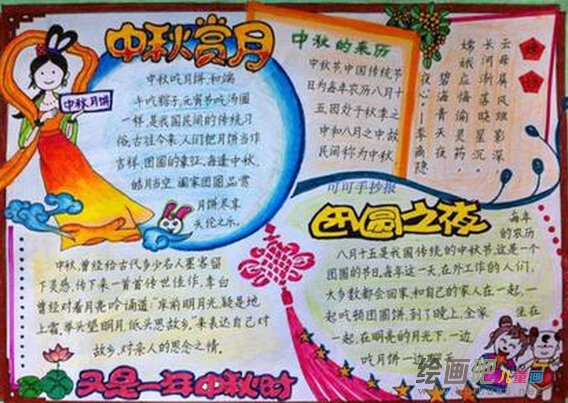 中秋赏月
中秋月饼
中秋吃月饼,和端
午吃粽子,元宵节吃汤圆
一样,是我国民间的传统习
俗,古往今来,人们把月饼当作
吉祥、团圆的象征,每逢中秋,
皓月当空,阖家团圆,品赏
月饼,尽享
天伦之乐。
中秋的来历
中秋节,中国传统节
日,为每年农历八月十
五,因处于秋季之
中和八月之中,故
民间称为中秋
嫦娥
云母屏风烛影深,
长河渐落晓星沉。
嫦娥应悔偷灵药,
碧海青天夜
夜心。——李商隐
可可手抄报
团圆之夜
每年
的农历
八月十五是我国传统的中秋节,这是一个
团圆的节日,每年这一天,在外工作的人们,
大多数都会回家,和自己的家人在一起,一
起吃顿团圆饼,到了晚上,全家坐在
一起,在明亮的月光下,一边
吃月饼一边
中秋,曾经给古代多少名人墨客留
下灵感,传下来一首首传世佳作,李白
曾经对着月亮吟诵道:“床前明月光,疑是地
上霜,举头望明月,低头思故乡,”来表达自己对
故乡,对亲人的思念之情。
又是一年中秋时
绘画吧
儿童画